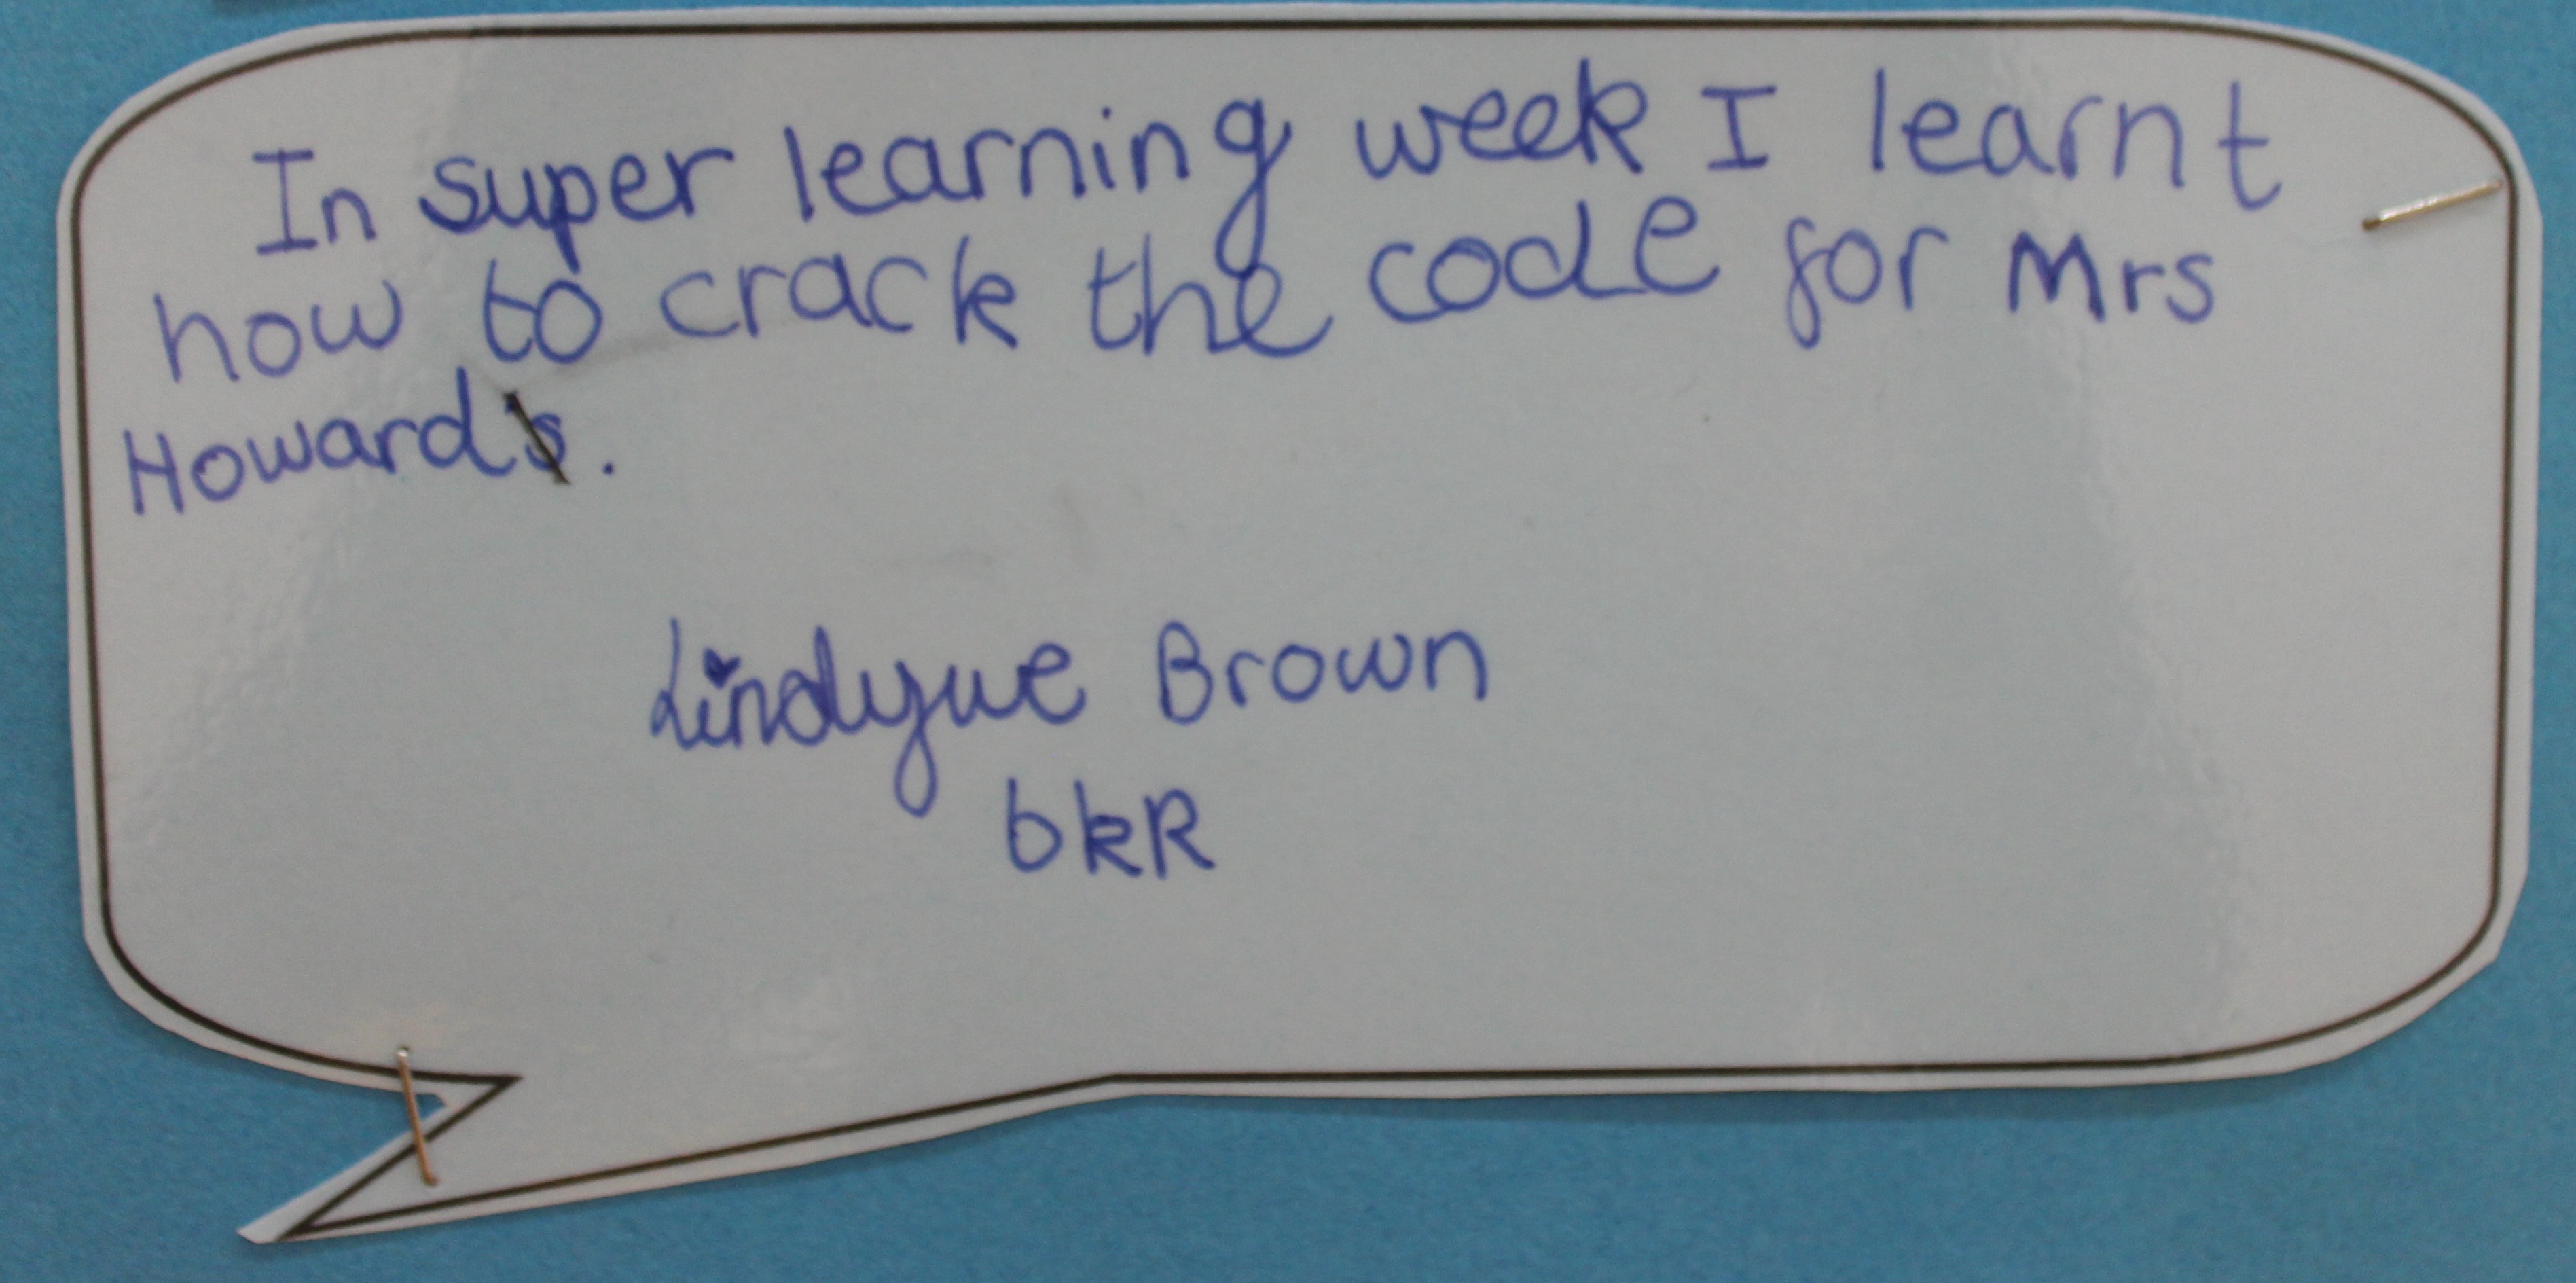 In super learning week I learnt
how to crack the code for Mrs
Howard.
Lindywe Brown
6KR